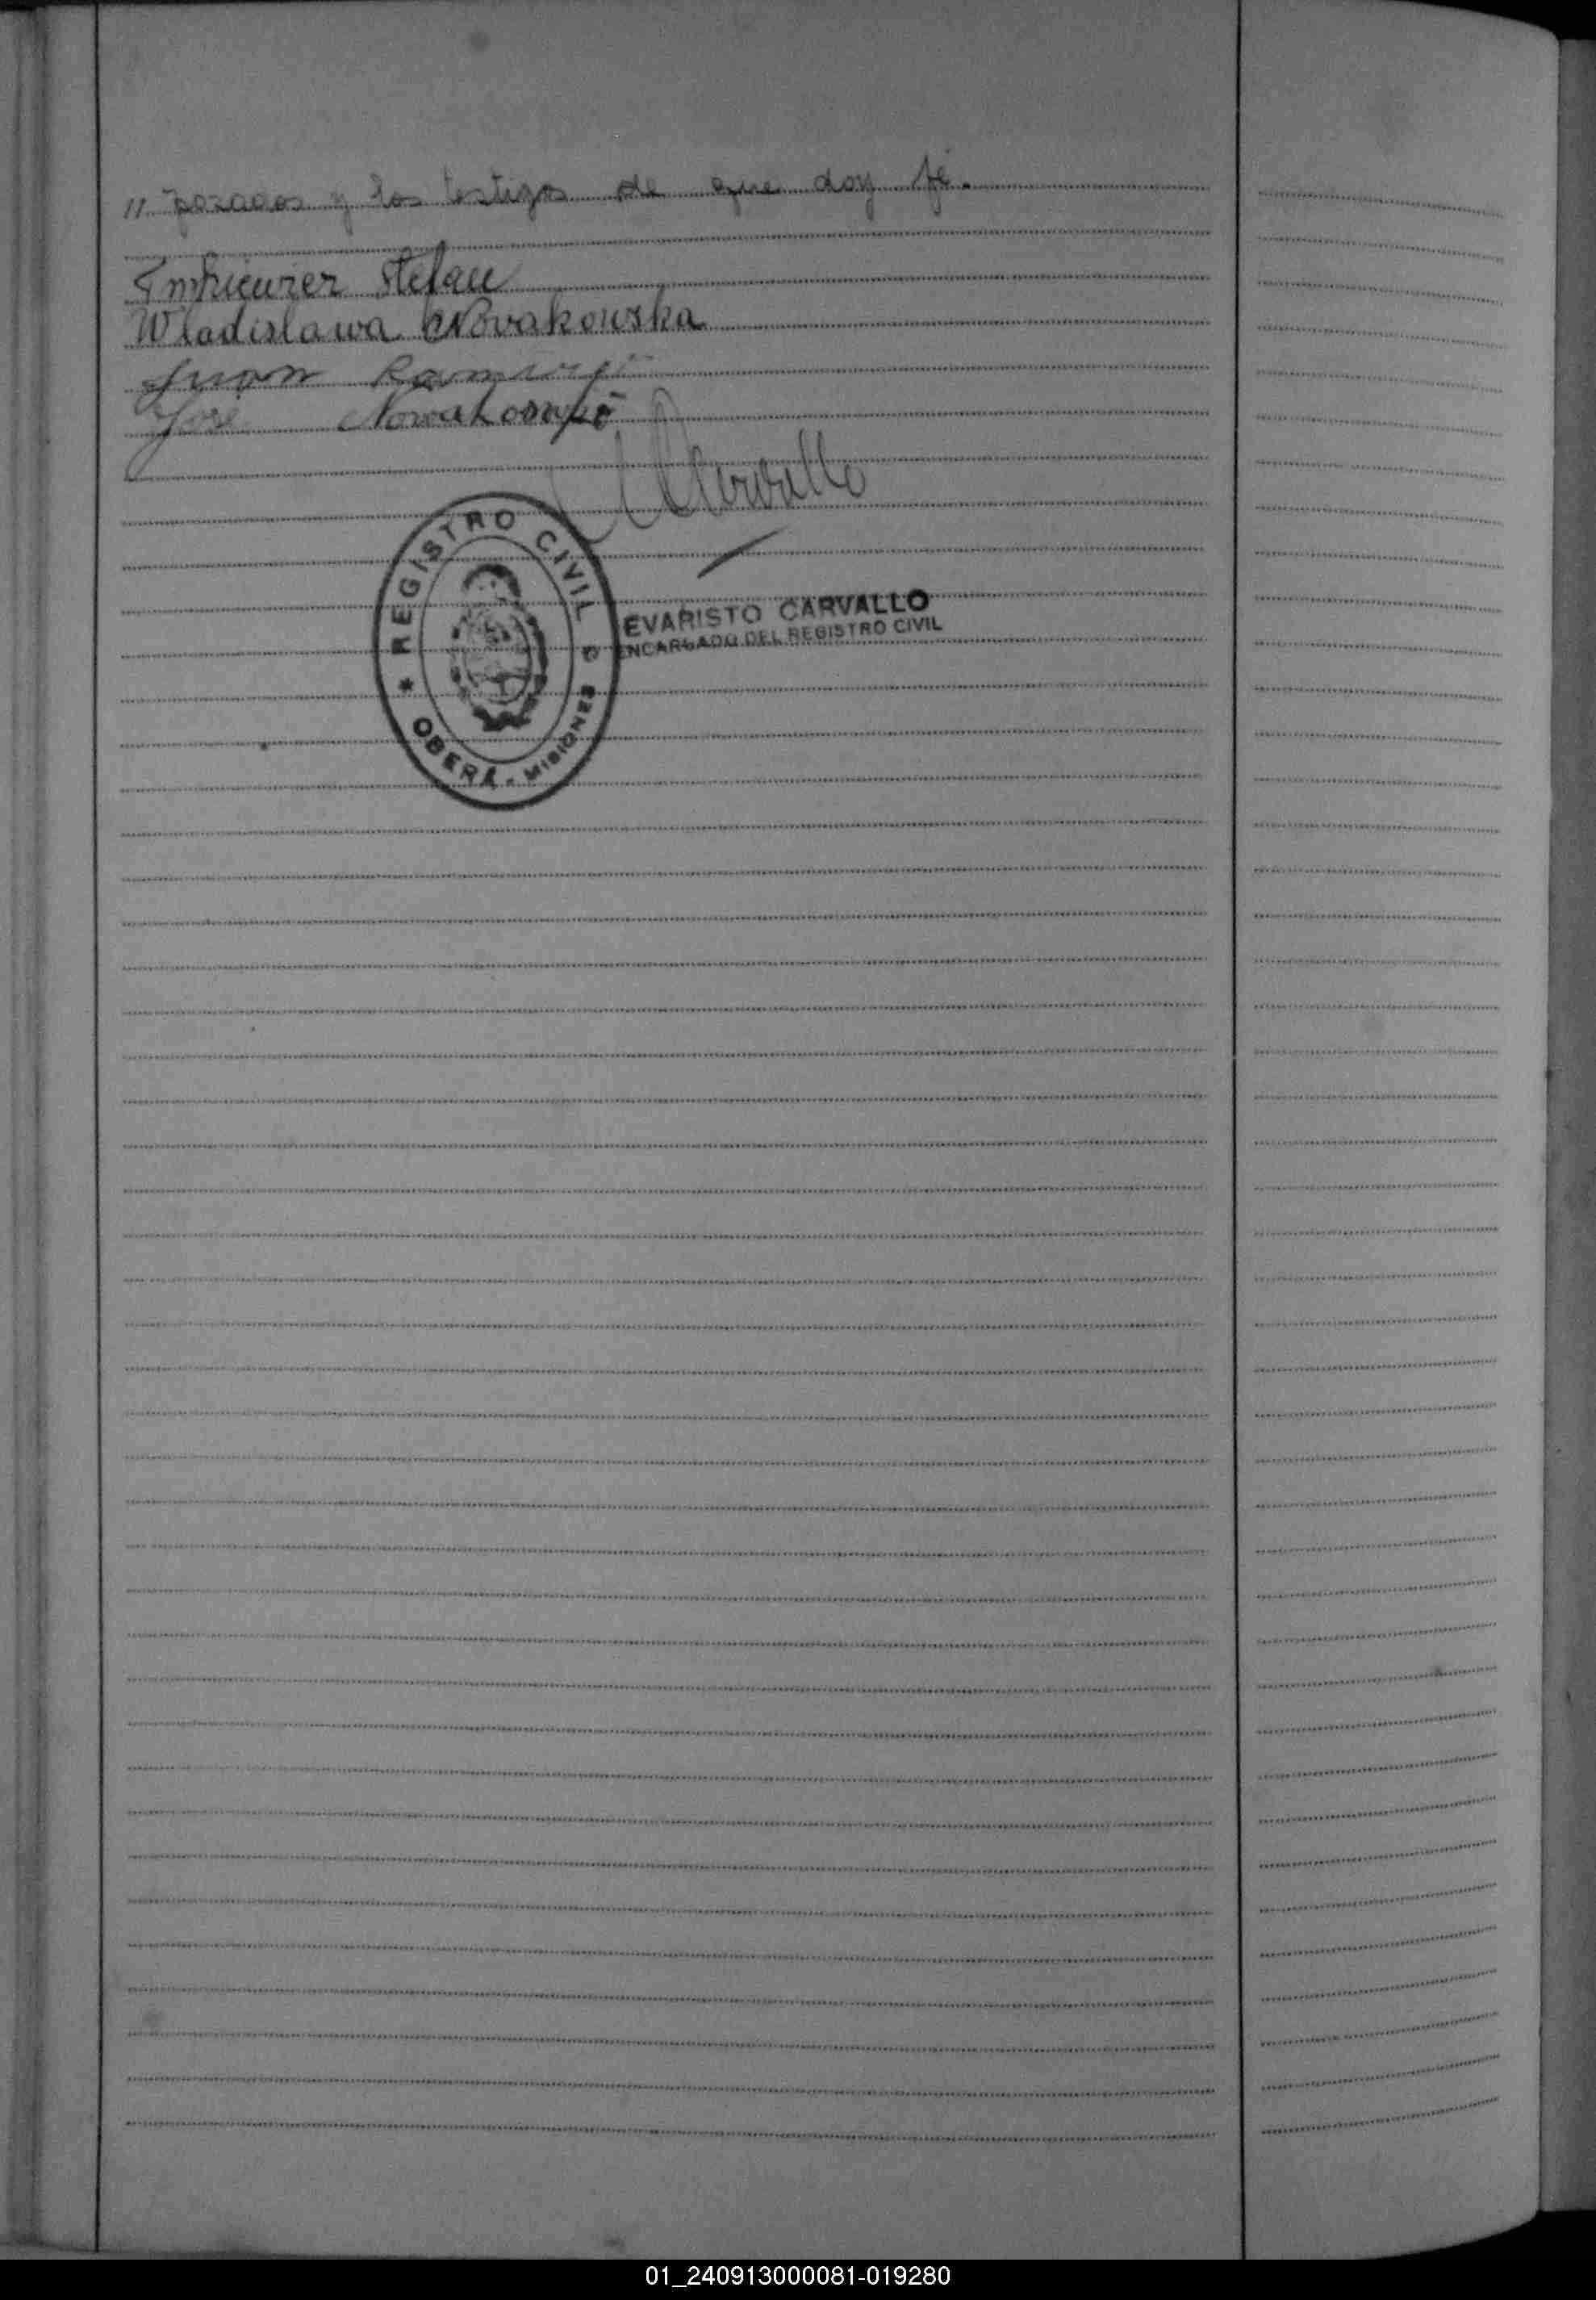 " posados y los testigos de que doy fé.
Stefan
Wladislawa Novakowska
Juan
José
Carvallo
REGISTRO CIVIL
OBERÁ - MISIONES
EVARISTO CARVALLO
ENCARGADO DEL REGISTRO CIVIL
01_240913000081-019280